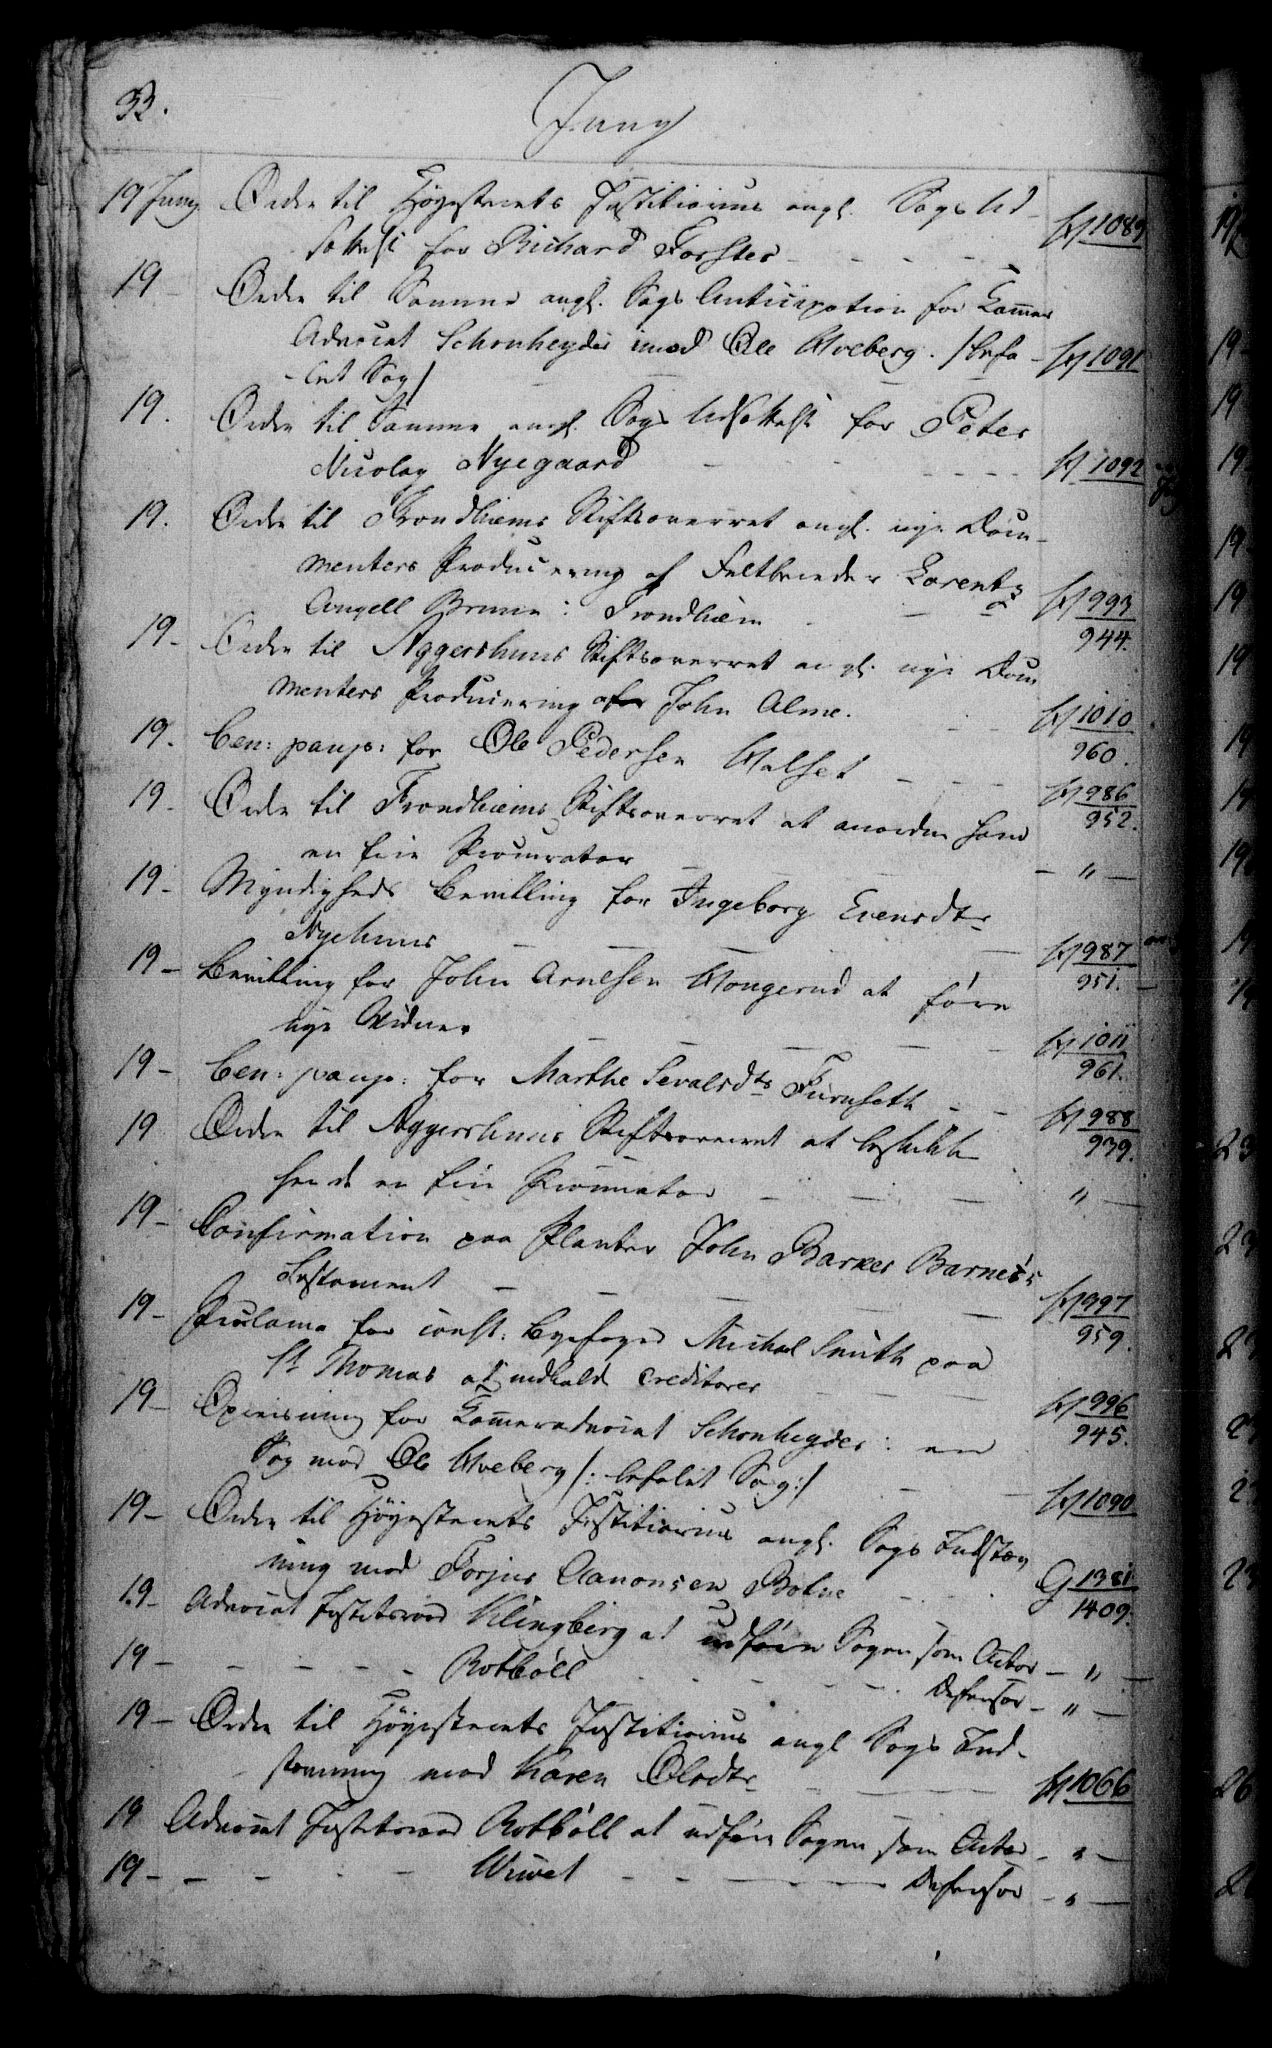 33.
Juny
19 Juny Ordre til Höyesterets Justitiarius angl. Sags Ud-
sættelse for Richard Forster - - - - W 1089
19 - Ordre til Samme angl. Sags Anticipation for Kammer
Advocat Schonheyder imod Ole Wveberg. /befa- W 1091
let Sag/ - - -
19. Ordre til Samme angl. Sags Udsættelse for Peter
Nicolay Nyegaard - - - - W 1092
19. Ordre til Trondhiems Stiftsoverret angl. nye Docu-
menters Producering af Feltbereder Lorentz
Angell Brunn i Trondhiem - - W 993
944.
19 - Ordre til Aggershuus Stiftsoverret angl. nye Docu
menters Producering af John Alme. - - W 1010
960.
19. ben: paup: for Ole Pedersen Walset - - - W 986
952.
19 - Ordre til Trondhiems Stiftsoverret at anordne ham
en frie Procurator - - " -
19 - Myndigheds Bevilling for Ingeborg Evensdtr
Nyehuus - - - - W 987
951.
19 - Bevilling for John Arnesen Wongerud at före
nye Vidner - - - - W 1011
961.
19 - ben: paup: for Marthe Sevalsdtr Furuseth - - W 988
939.
19 Ordre til Aggershuus Stiftsoverret at beskikke
hende en frie Procurator - - - " -
19 - Confirmation paa Planter John Barker Barnes's
Testament - - - - W 997
959.
19 - Proclama for const: Byefoged Michael Smith paa
St Thomas at indkalde Creditorer - - W 996
945.
19 - Opreisning for Kammeradvocat Schonheyder i en
Sag mod Ole Wveberg /: befalet Sag:/ - - W 1090
19 - Ordre til Höyesterets Justitiarius angl. Sags Indstæv
ning mod Torjus Aanonsen Bolne - - G 1381
1409.
19 - Advocat Justitsraad Klingberg at udföre Sagen som Actor - " -
19 - - - - - Rotböll - - - - Defensor - " -
19 - Ordre til Höyesterets Justitiarius angl. Sags Ind-
stævning mod Karen Olsdtr - - - W 1066
19 Advocat Justitsraad Rotböll at udföre Sagen som Actor - " -
19 - - - - - Wivet - - - - Defensor - " -